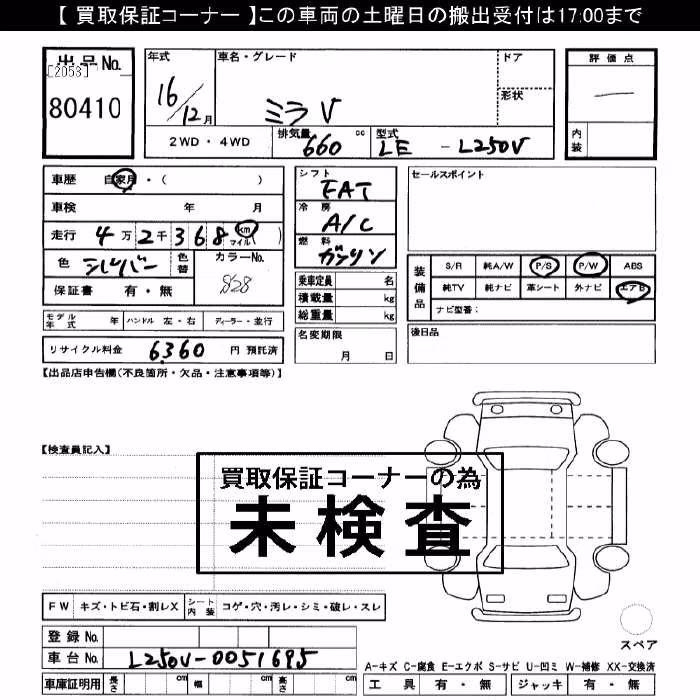 【 買取保証コーナー 】この車両の土曜日の搬出受付は17:00まで
出品 No.
[2053]
80410
年式 車名・グレード ドア 評価点
16/12月 ミラV 形状 —
2WD・4WD 排気量 660 cc 型式 LE - L250V 内装
車歴 自家用・( )
車検 年 月
走行 4万2千368 km マイル ( )
色 シルバー 色替 カラーNo. S28
保証書 有・無
モデル年式 年 ハンドル 左・右 ディーラー・並行
リサイクル料金 6360 円 預託済
シフト FAT
冷房 A/C
燃料 ガソリン
乗車定員 名
積載量 kg
総重量 kg
名変期限
月 日
セールスポイント
装備品 S/R 純A/W P/S P/W ABS
純TV 純ナビ 革シート 外ナビ エアB
ナビ型番:
後日品
【出品店申告欄(不良箇所・欠品・注意事項等)】
【検査員記入】
買取保証コーナーの為
未検査
FW キズ・トビ石・割レX シート内装 コゲ・穴・汚レ・シミ・破レ・スレ
登録 No.
車台 No. L250V-0051695
車庫証明用 長さ cm 幅 cm 高さ cm
スペア
A-キズ C-腐食 E-エクボ S-サビ U-凹ミ W-補修 XX-交換済
工具 有・無 ジャッキ 有・無